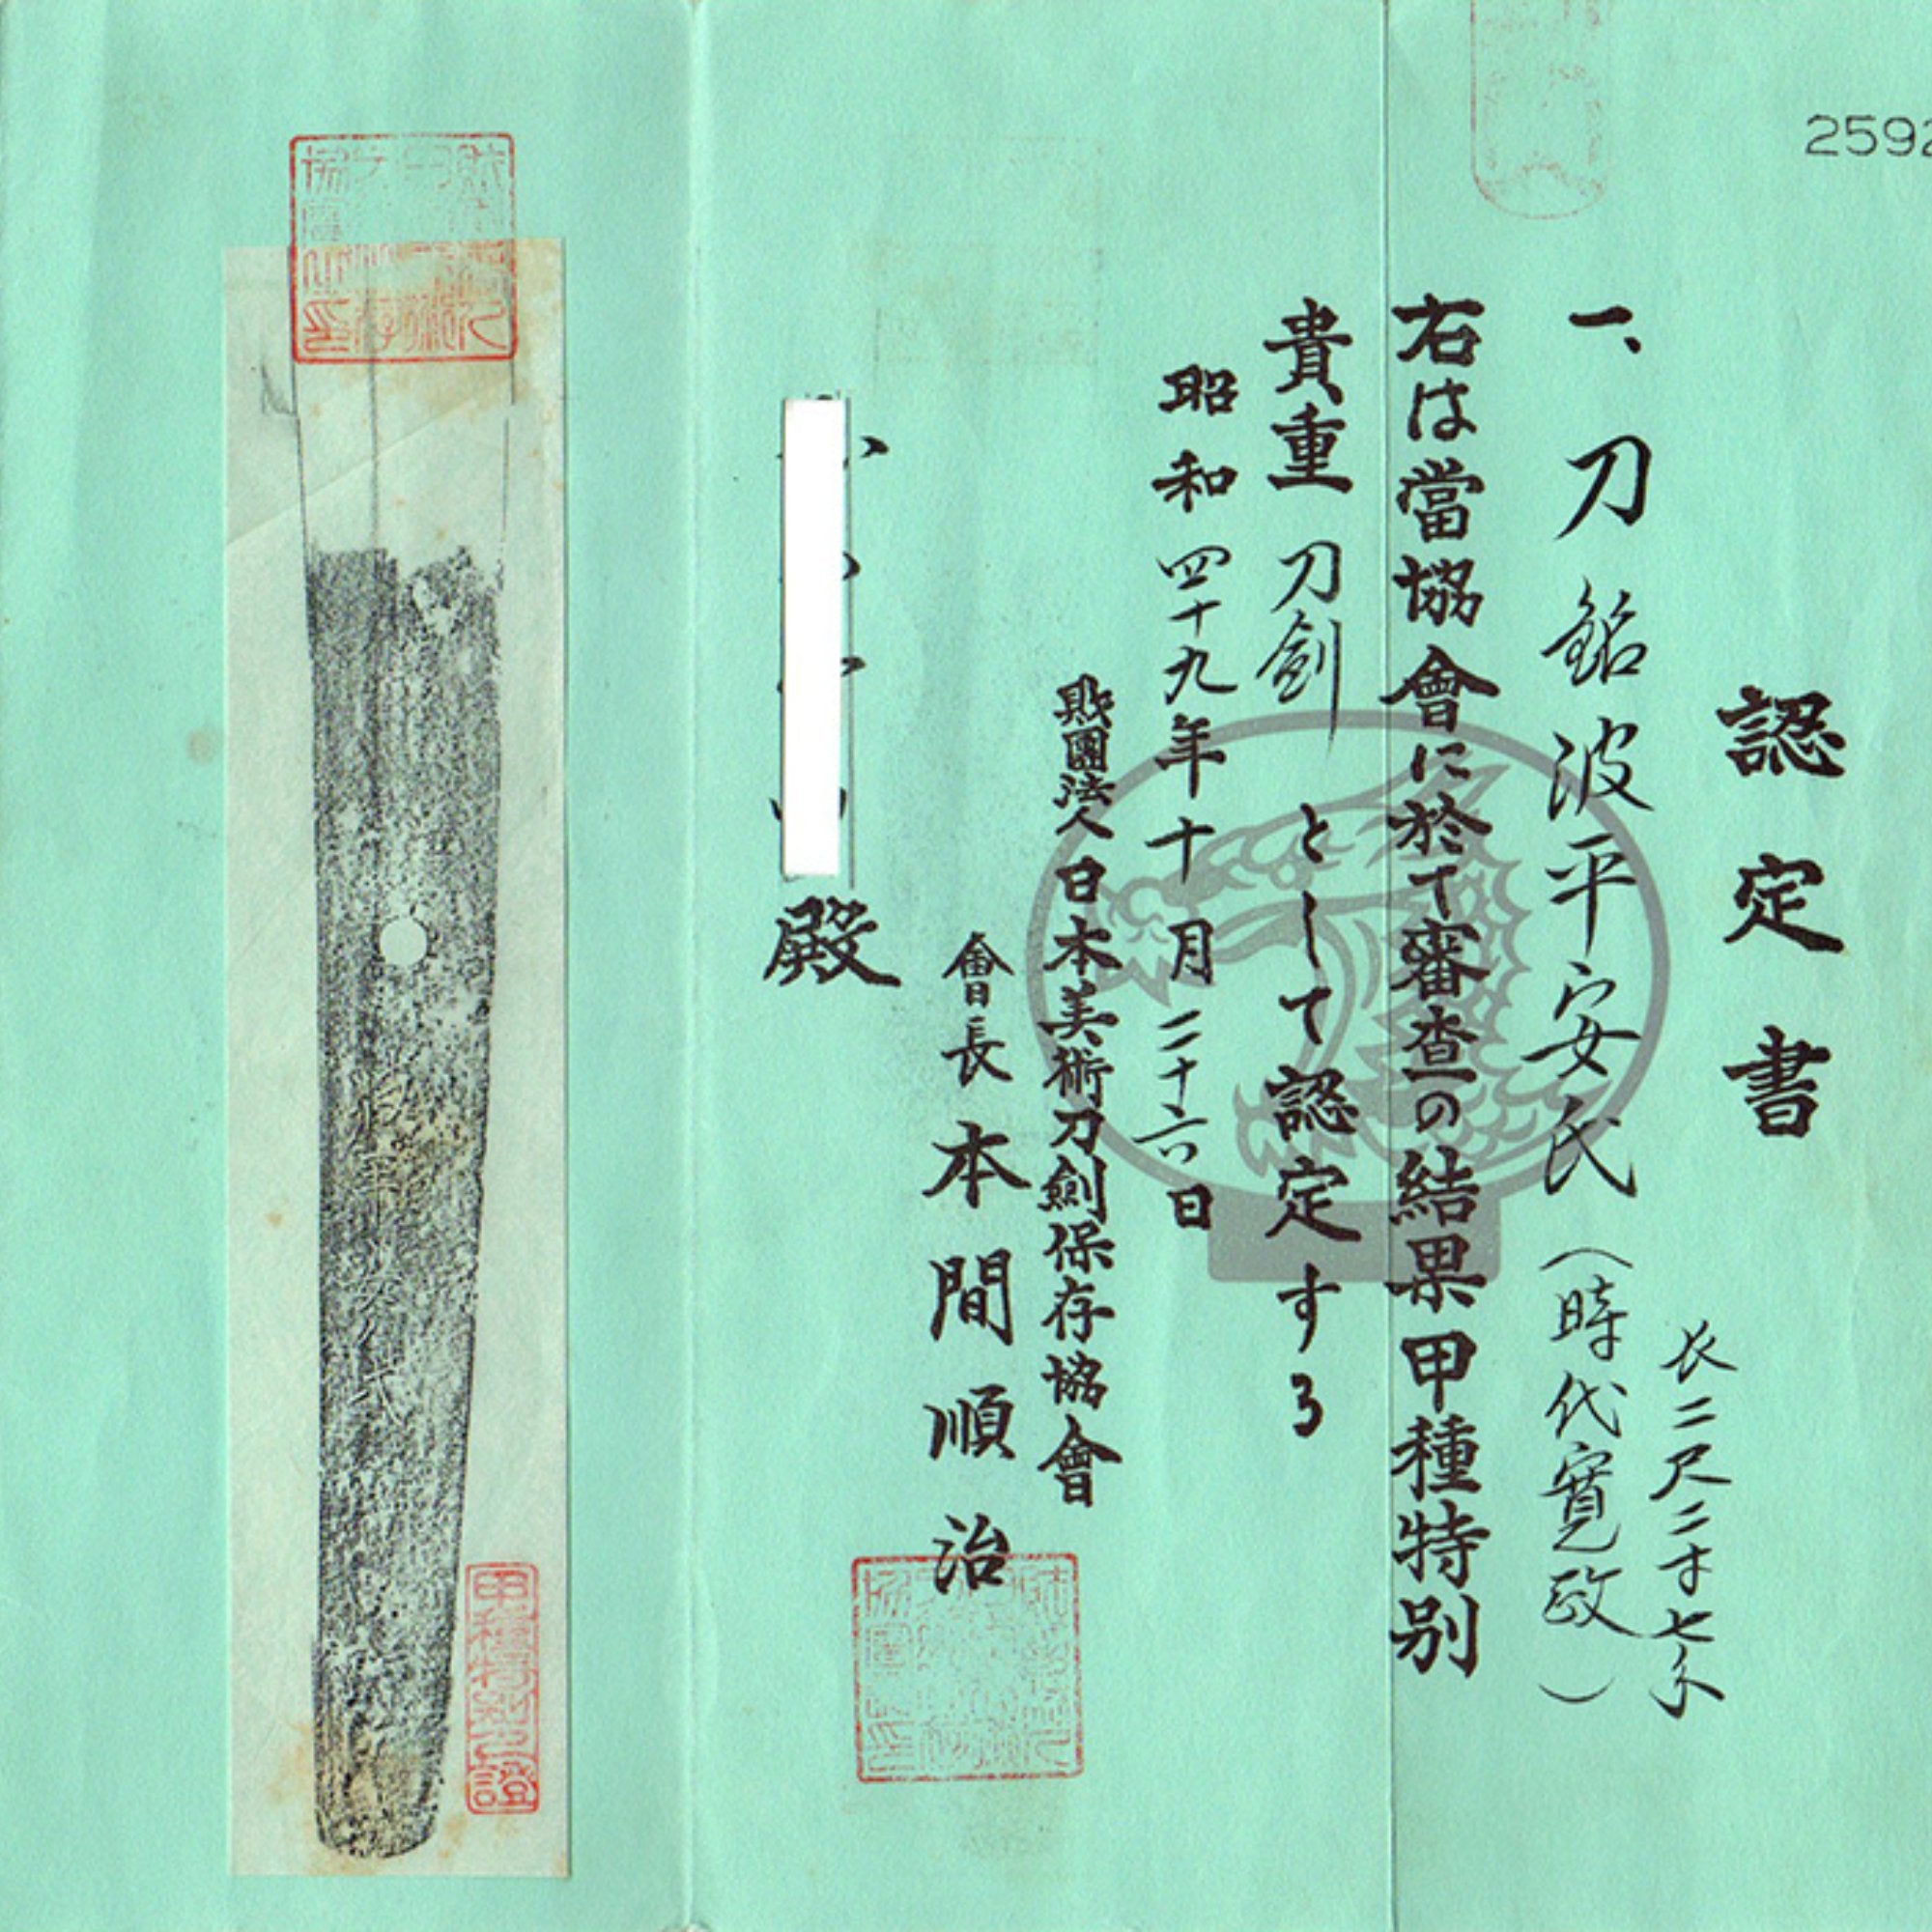 2592
認定書
長二尺二寸七分
一、刀 銘 波平安氏(時代寛政)
右は當協會に於て審査の結果甲種特別
貴重 刀剣 として認定する
昭和四十九年十月二十六日
財團法人 日本美術刀劍保存協會
會長 本間順治
殿
甲種特別之證